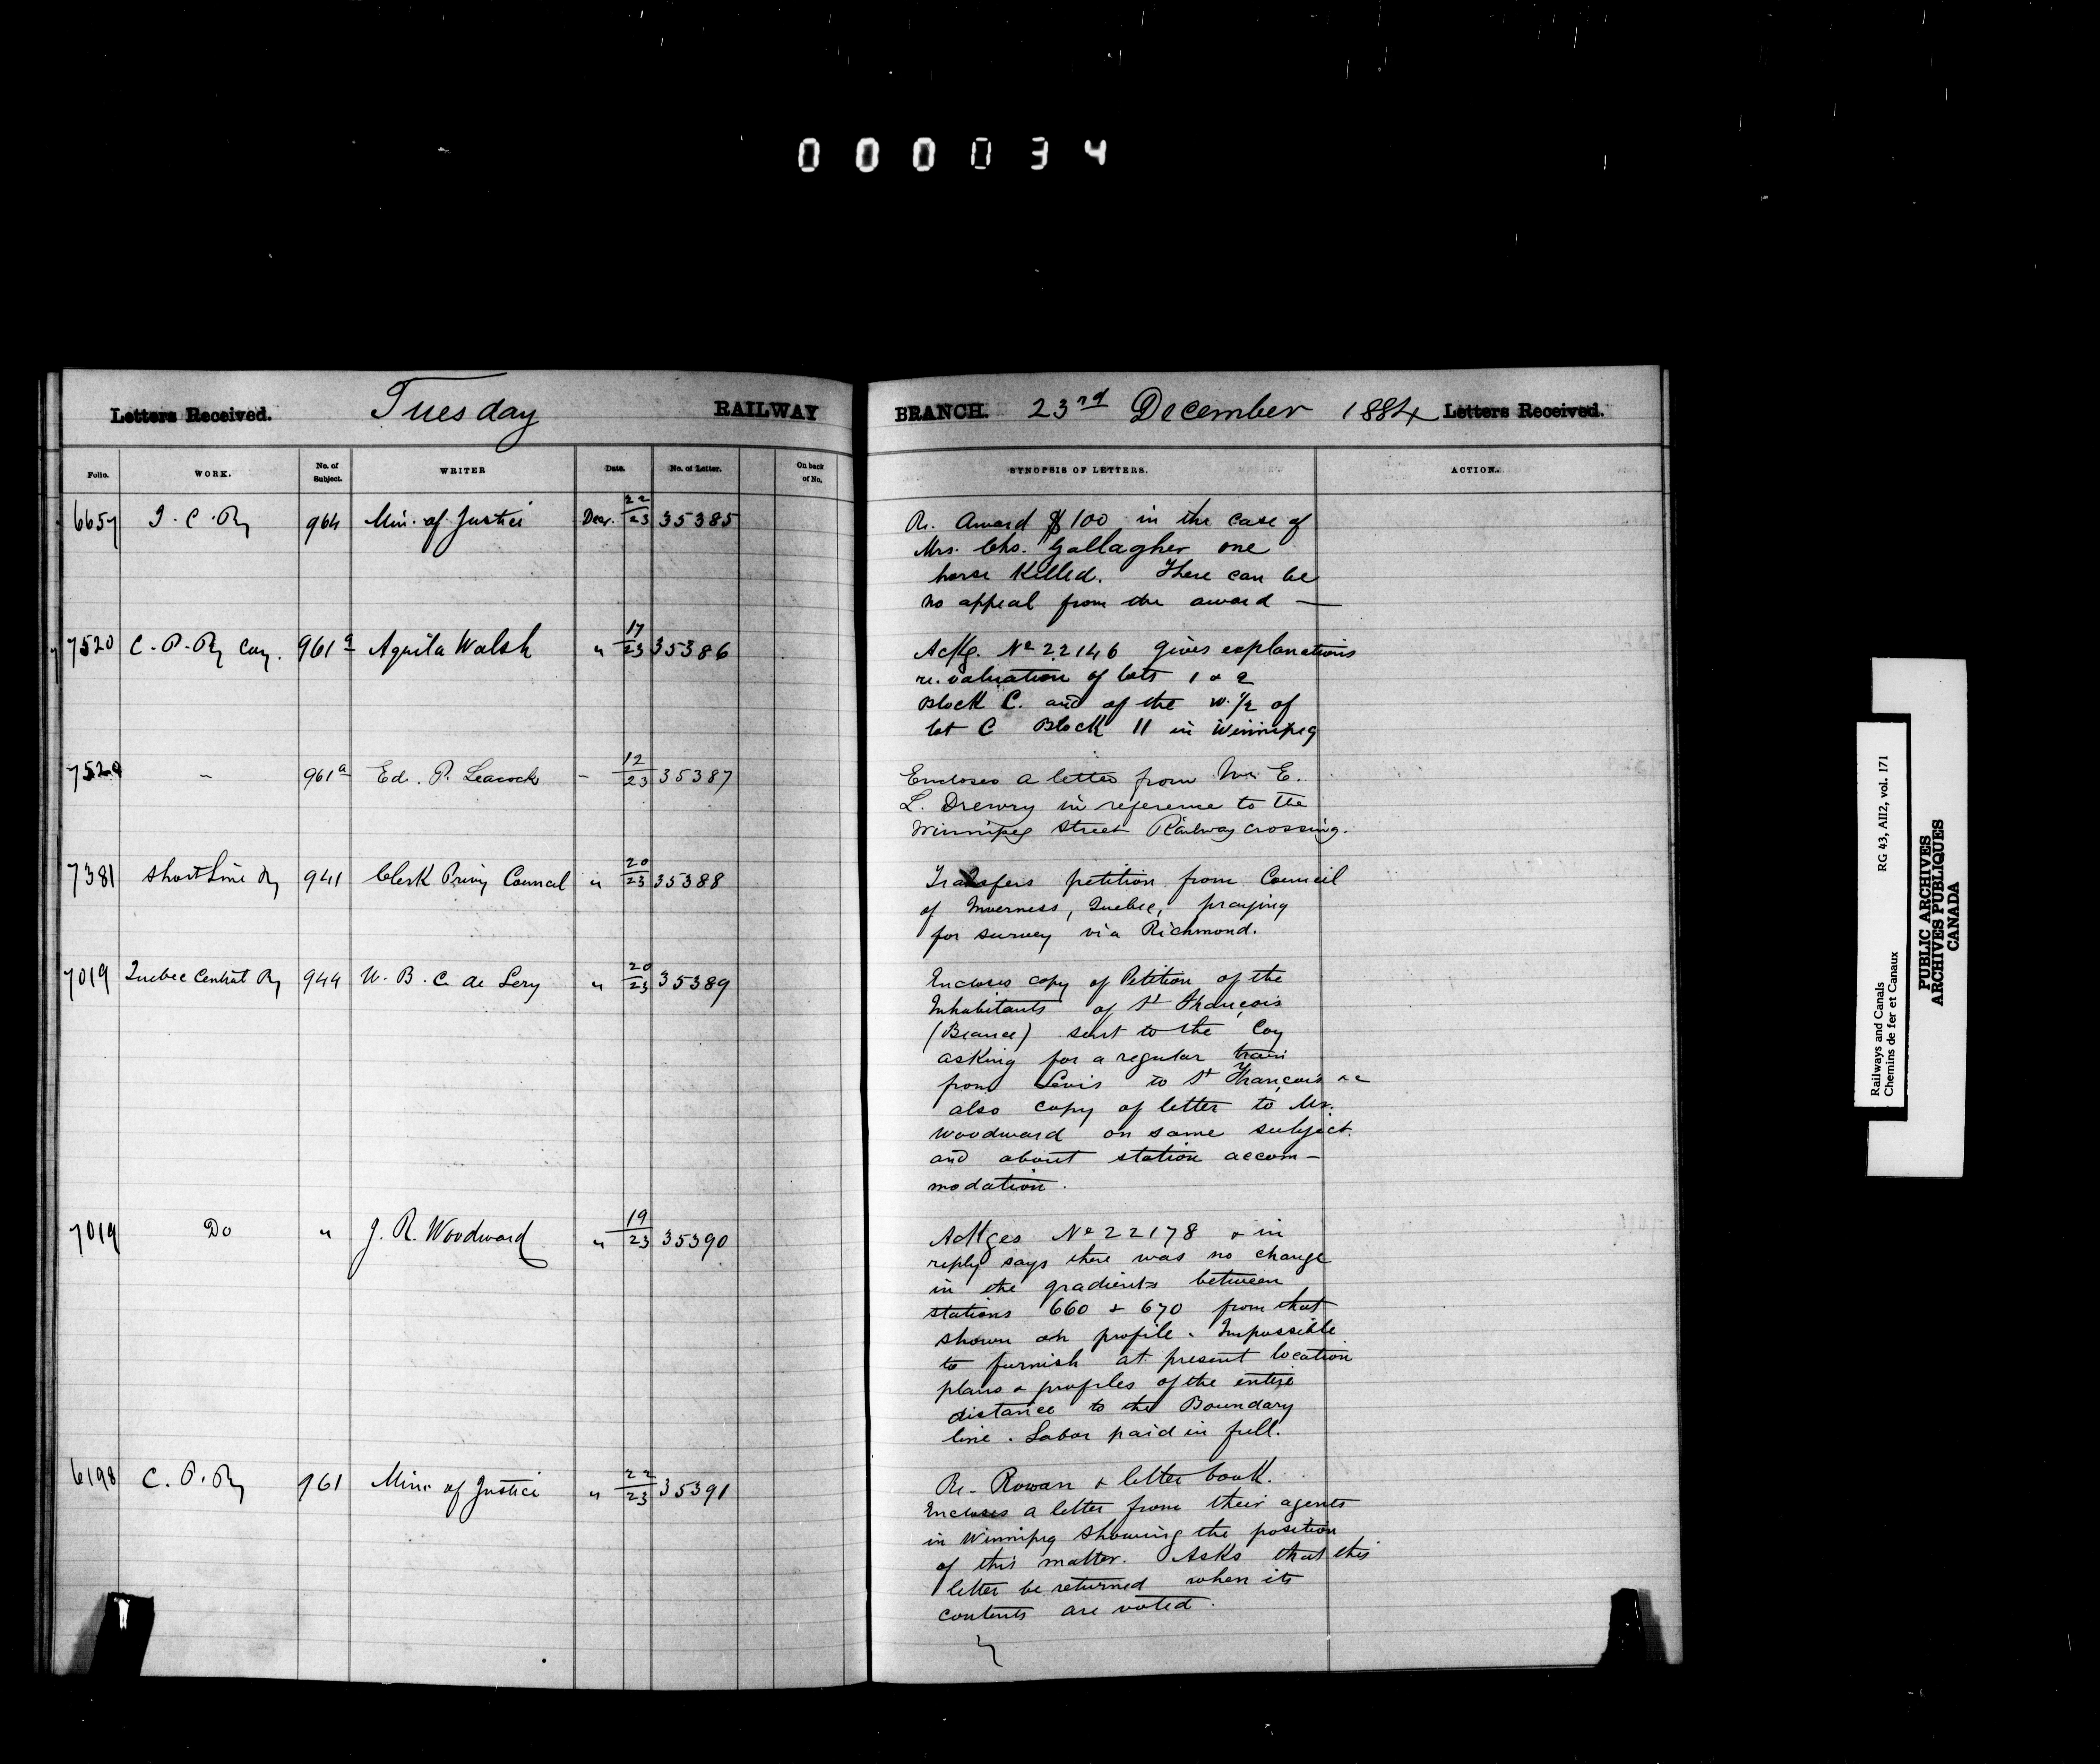 0 0 0 0 3 4
Letters Received. Tuesday RAILWAY BRANCH. 23rd December 1884 Letters Received.
Folio. WORK. No. of Subject. WRITER Date. No. of Letter. On back of No. SYNOPSIS OF LETTERS. ACTION.
6657 I. C. Ry 964 Min. of Justice Decr. 22/23 35385 Re. Award $100 in the case of
Mrs. Chs. Gallagher one
horse Killed. There can be
no appeal from the award —
7520 C. P. Ry Coy. 961a Aquila Walsh " 17/23 35386 Ackg. No 22146 gives explanations
re. valuation of lots 1 & 2
Block C. and of the W. 1/2 of
lot C Block 11 in Winnipeg
7520 " 961a Ed. P. Leacock " 12/23 35387 Encloses a letter from Mr. E.
L. Drewry in reference to the
Winnipeg Street Railway crossing.
7381 Short Line Ry 941 Clerk Privy Council " 20/23 35388 Transfers petition from Council
of Inverness, Quebec, praying
for survey via Richmond.
7019 Quebec Central Ry 944 W. B. C. de Lery " 20/23 35389 Encloses copy of Petition of the
Inhabitants of St François
(Beauce) sent to the Coy
asking for a regular train
from Levis to St François &c
also copy of letter to Mr.
Woodward on same subject.
and about station accom-
modation.
7019 Do " J. R. Woodward " 19/23 35390 Ackges No 22178 & in
reply says there was no change
in the gradients between
stations 660 & 670 from that
shown on profile. Impossible
to furnish at present location
plans & profiles of the entire
distance to the Boundary
line. Labor paid in full.
6198 C. P. Ry 961 Minr of Justice " 22/23 35391 Re. Rowan & letter book.
Encloses a letter from their agents
in Winnipeg showing the position
of this matter. Asks that this
letter be returned when its
contents are noted.
Railways and Canals RG 43, AII2, vol. 171
Chemins de fer et Canaux
PUBLIC ARCHIVES
ARCHIVES PUBLIQUES
CANADA